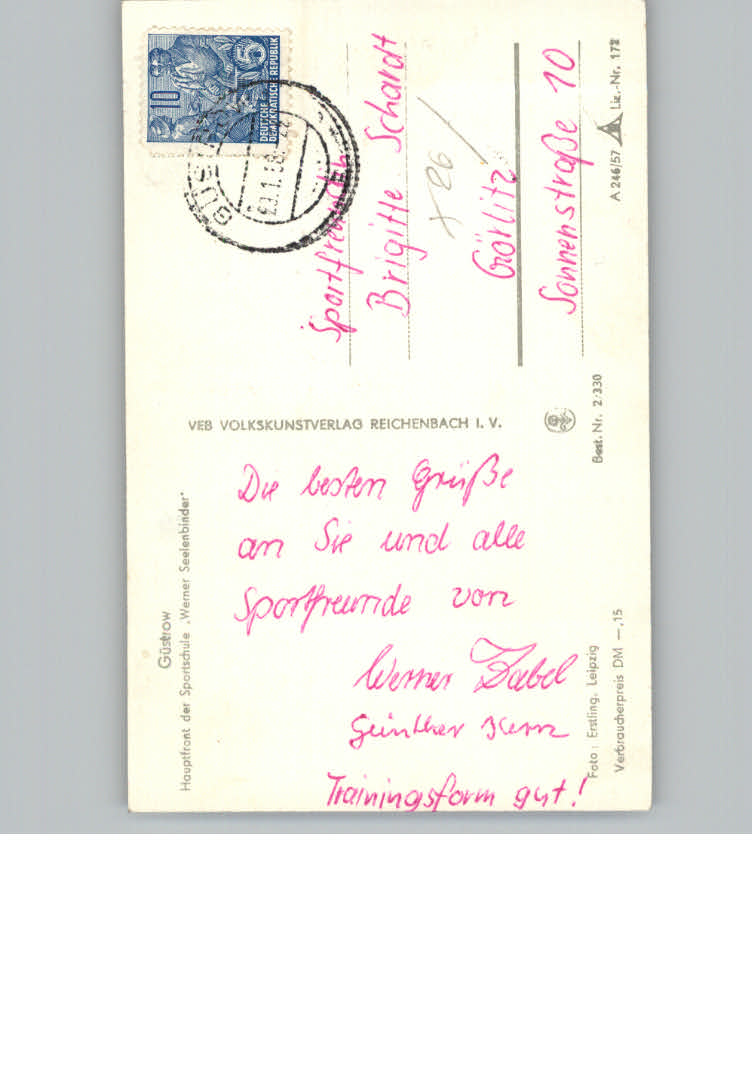 10
5
DEUTSCHE
DEMOKRATISCHE REPUBLIK
Brigitte Schardt
Görlitz
Sonnenstraße 10
x 26 /
A 246/57 Liz.-Nr. 172
VEB VOLKSKUNSTVERLAG REICHENBACH I. V.
Best. Nr. 2/330
Güstrow
Hauptfront der Sportschule „Werner Seelenbinder"
Die besten Grüße
an Sie und alle
Sportfreunde von
Werner Zabel
Günther Kern
Trainingsform gut!
Foto: Erstling, Leipzig
Verbraucherpreis DM —,15